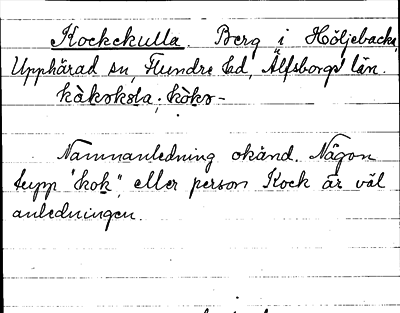 Kockekulla. Berg i Höljebacka,
Upphärad sn, Flundre hd, Älfsborgs län.
kàkokola; kòko-
Namnanledning okänd. Någon
tupp "kok", eller person Kock är väl
anledningen.